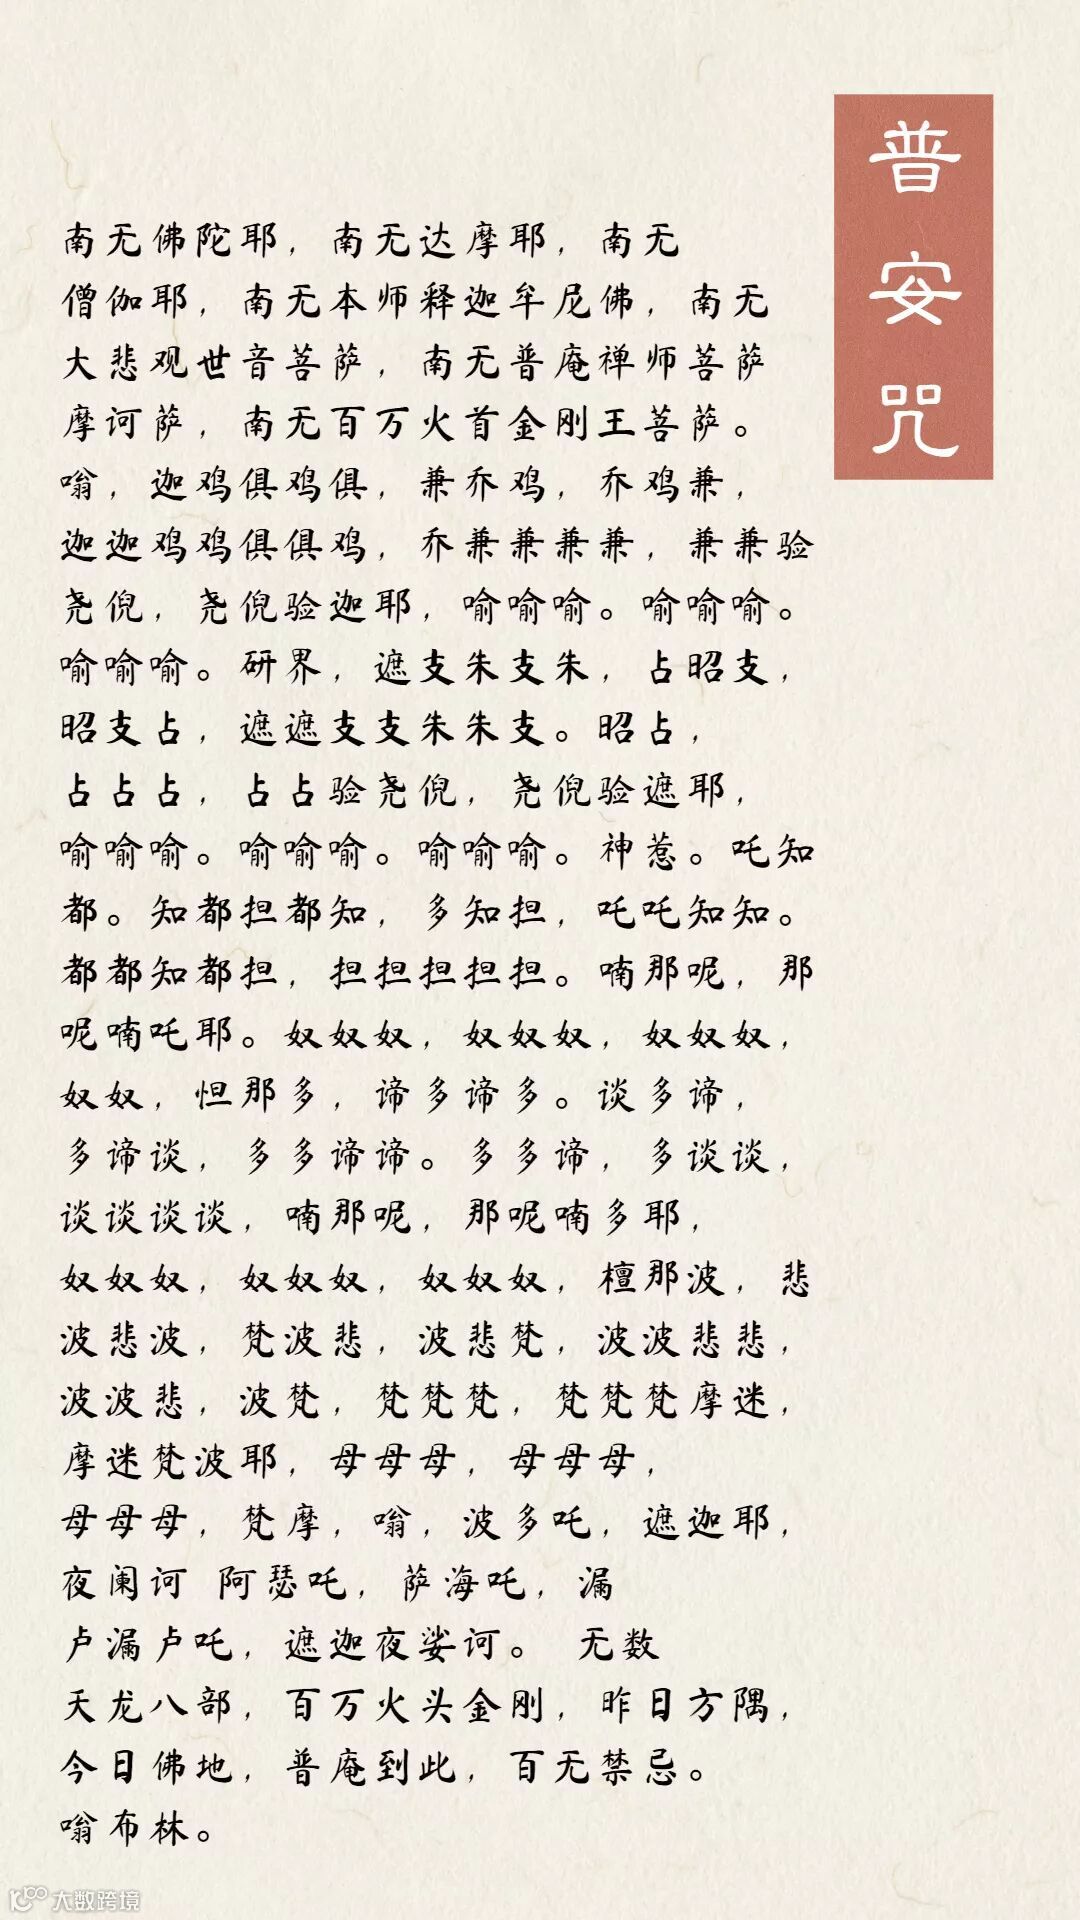 普安咒
南无佛陀耶，南无达摩耶，南无
僧伽耶，南无本师释迦牟尼佛，南无
大悲观世音菩萨，南无普庵禅师菩萨
摩诃萨，南无百万火首金刚王菩萨。
嗡，迦鸡俱鸡俱，兼乔鸡，乔鸡兼，
迦迦鸡鸡俱俱鸡，乔兼兼兼兼，兼兼验
尧倪，尧倪验迦耶，喻喻喻。喻喻喻。
喻喻喻。研界，遮支朱支朱，占昭支，
昭支占，遮遮支支朱朱支。昭占，
占占占，占占验尧倪，尧倪验遮耶，
喻喻喻。喻喻喻。喻喻喻。神惹。吒知
都。知都担都知，多知担，吒吒知知。
都都知都担，担担担担担。喃那呢，那
呢喃吒耶。奴奴奴，奴奴奴，奴奴奴，
奴奴，怛那多，谛多谛多。谈多谛，
多谛谈，多多谛谛。多多谛，多谈谈，
谈谈谈谈，喃那呢，那呢喃多耶，
奴奴奴，奴奴奴，奴奴奴，檀那波，悲
波悲波，梵波悲，波悲梵，波波悲悲，
波波悲，波梵，梵梵梵，梵梵梵摩迷，
摩迷梵波耶，母母母，母母母，
母母母，梵摩，嗡，波多吒，遮迦耶，
夜阑诃 阿瑟吒，萨海吒，漏
卢漏卢吒，遮迦夜娑诃。 无数
天龙八部，百万火头金刚，昨日方隅，
今日佛地，普庵到此，百无禁忌。
嗡布林。
大数跨境